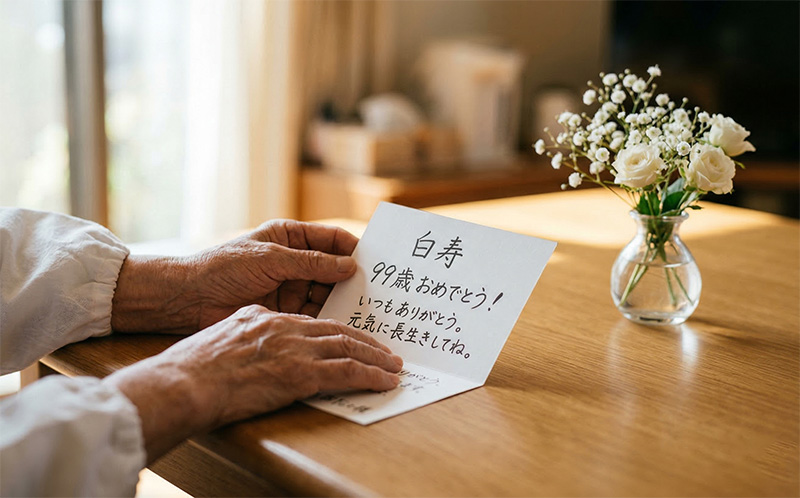 白寿
99歳 おめでとう!
いつもありがとう。
元気に長生きしてね。